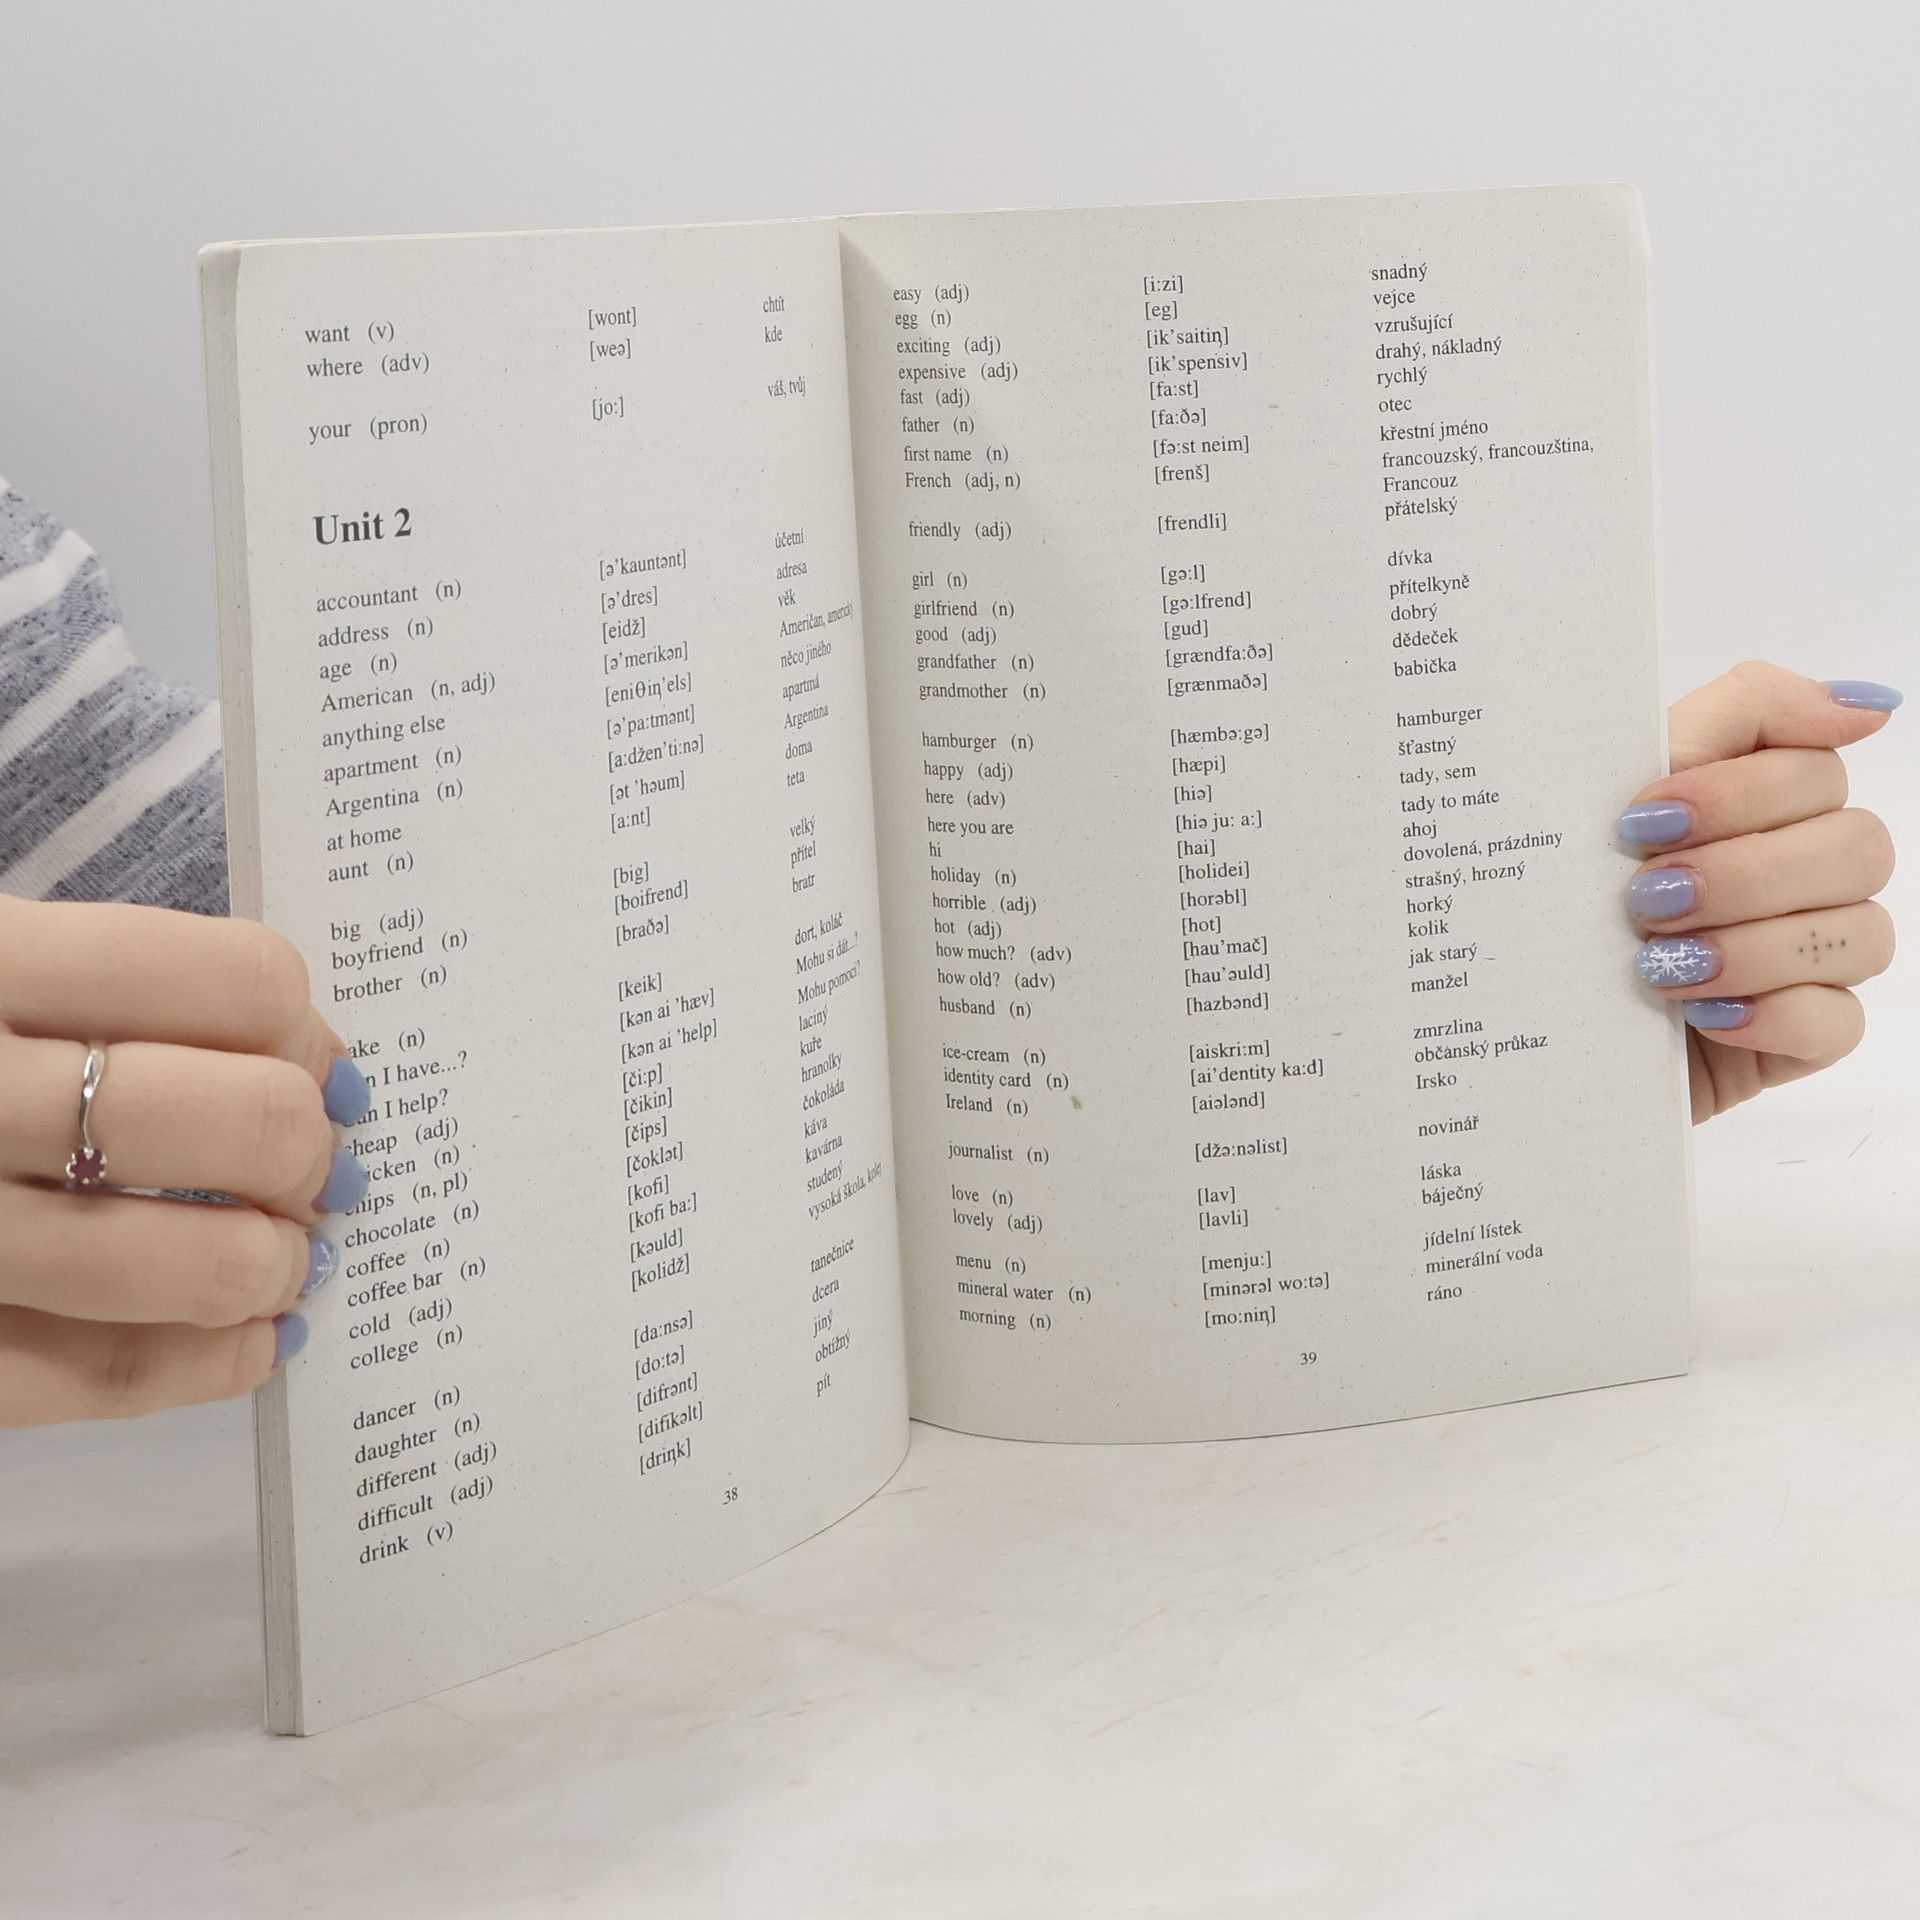 want (v) [wont] chtít
where (adv) [weə] kde
your (pron) [jo:] váš, tvůj
Unit 2
accountant (n) [ə’kauntənt] účetní
address (n) [ə’dres] adresa
age (n) [eidž] věk
American (n, adj) [ə’merikən] Američan, americký
anything else [eniθiŋ’els] něco jiného
apartment (n) [ə’pa:tmənt] apartmá
Argentina (n) [a:džen’ti:nə] Argentina
at home [ət ’həum] doma
aunt (n) [a:nt] teta
big (adj) [big] velký
boyfriend (n) [boifrend] přítel
brother (n) [braðə] bratr
ake (n) [keik] dort, koláč
n I have...? [kən ai ’hæv] Mohu si dát...?
an I help? [kən ai ’help] Mohu pomoci?
cheap (adj) [či:p] laciný
icken (n) [čikin] kuře
hips (n, pl) [čips] hranolky
chocolate (n) [čoklət] čokoláda
coffee (n) [kofi] káva
coffee bar (n) [kofi ba:] kavárna
cold (adj) [kəuld] studený
college (n) [kolidž] vysoká škola, kolej
dancer (n) [da:nsə] tanečnice
daughter (n) [do:tə] dcera
different (adj) [difrənt] jiný
difficult (adj) [difikəlt] obtížný
drink (v) [driŋk] pít
38
easy (adj) [i:zi] snadný
egg (n) [eg] vejce
exciting (adj) [ik’saitiŋ] vzrušující
expensive (adj) [ik’spensiv] drahý, nákladný
fast (adj) [fa:st] rychlý
father (n) [fa:ðə] otec
first name (n) [fə:st neim] křestní jméno
French (adj, n) [frenš] francouzský, francouzština,
Francouz
friendly (adj) [frendli] přátelský
girl (n) [gə:l] dívka
girlfriend (n) [gə:lfrend] přítelkyně
good (adj) [gud] dobrý
grandfather (n) [grændfa:ðə] dědeček
grandmother (n) [grænmaðə] babička
hamburger (n) [hæmbə:gə] hamburger
happy (adj) [hæpi] šťastný
here (adv) [hiə] tady, sem
here you are [hiə ju: a:] tady to máte
hi [hai] ahoj
holiday (n) [holidei] dovolená, prázdniny
horrible (adj) [horəbl] strašný, hrozný
hot (adj) [hot] horký
how much? (adv) [hau’mač] kolik
how old? (adv) [hau’əuld] jak starý
husband (n) [hazbənd] manžel
ice-cream (n) [aiskri:m] zmrzlina
identity card (n) [ai’dentity ka:d] občanský průkaz
Ireland (n) [aiələnd] Irsko
journalist (n) [džə:nəlist] novinář
love (n) [lav] láska
lovely (adj) [lavli] báječný
menu (n) [menju:] jídelní lístek
mineral water (n) [minərəl wo:tə] minerální voda
morning (n) [mo:niŋ] ráno
39